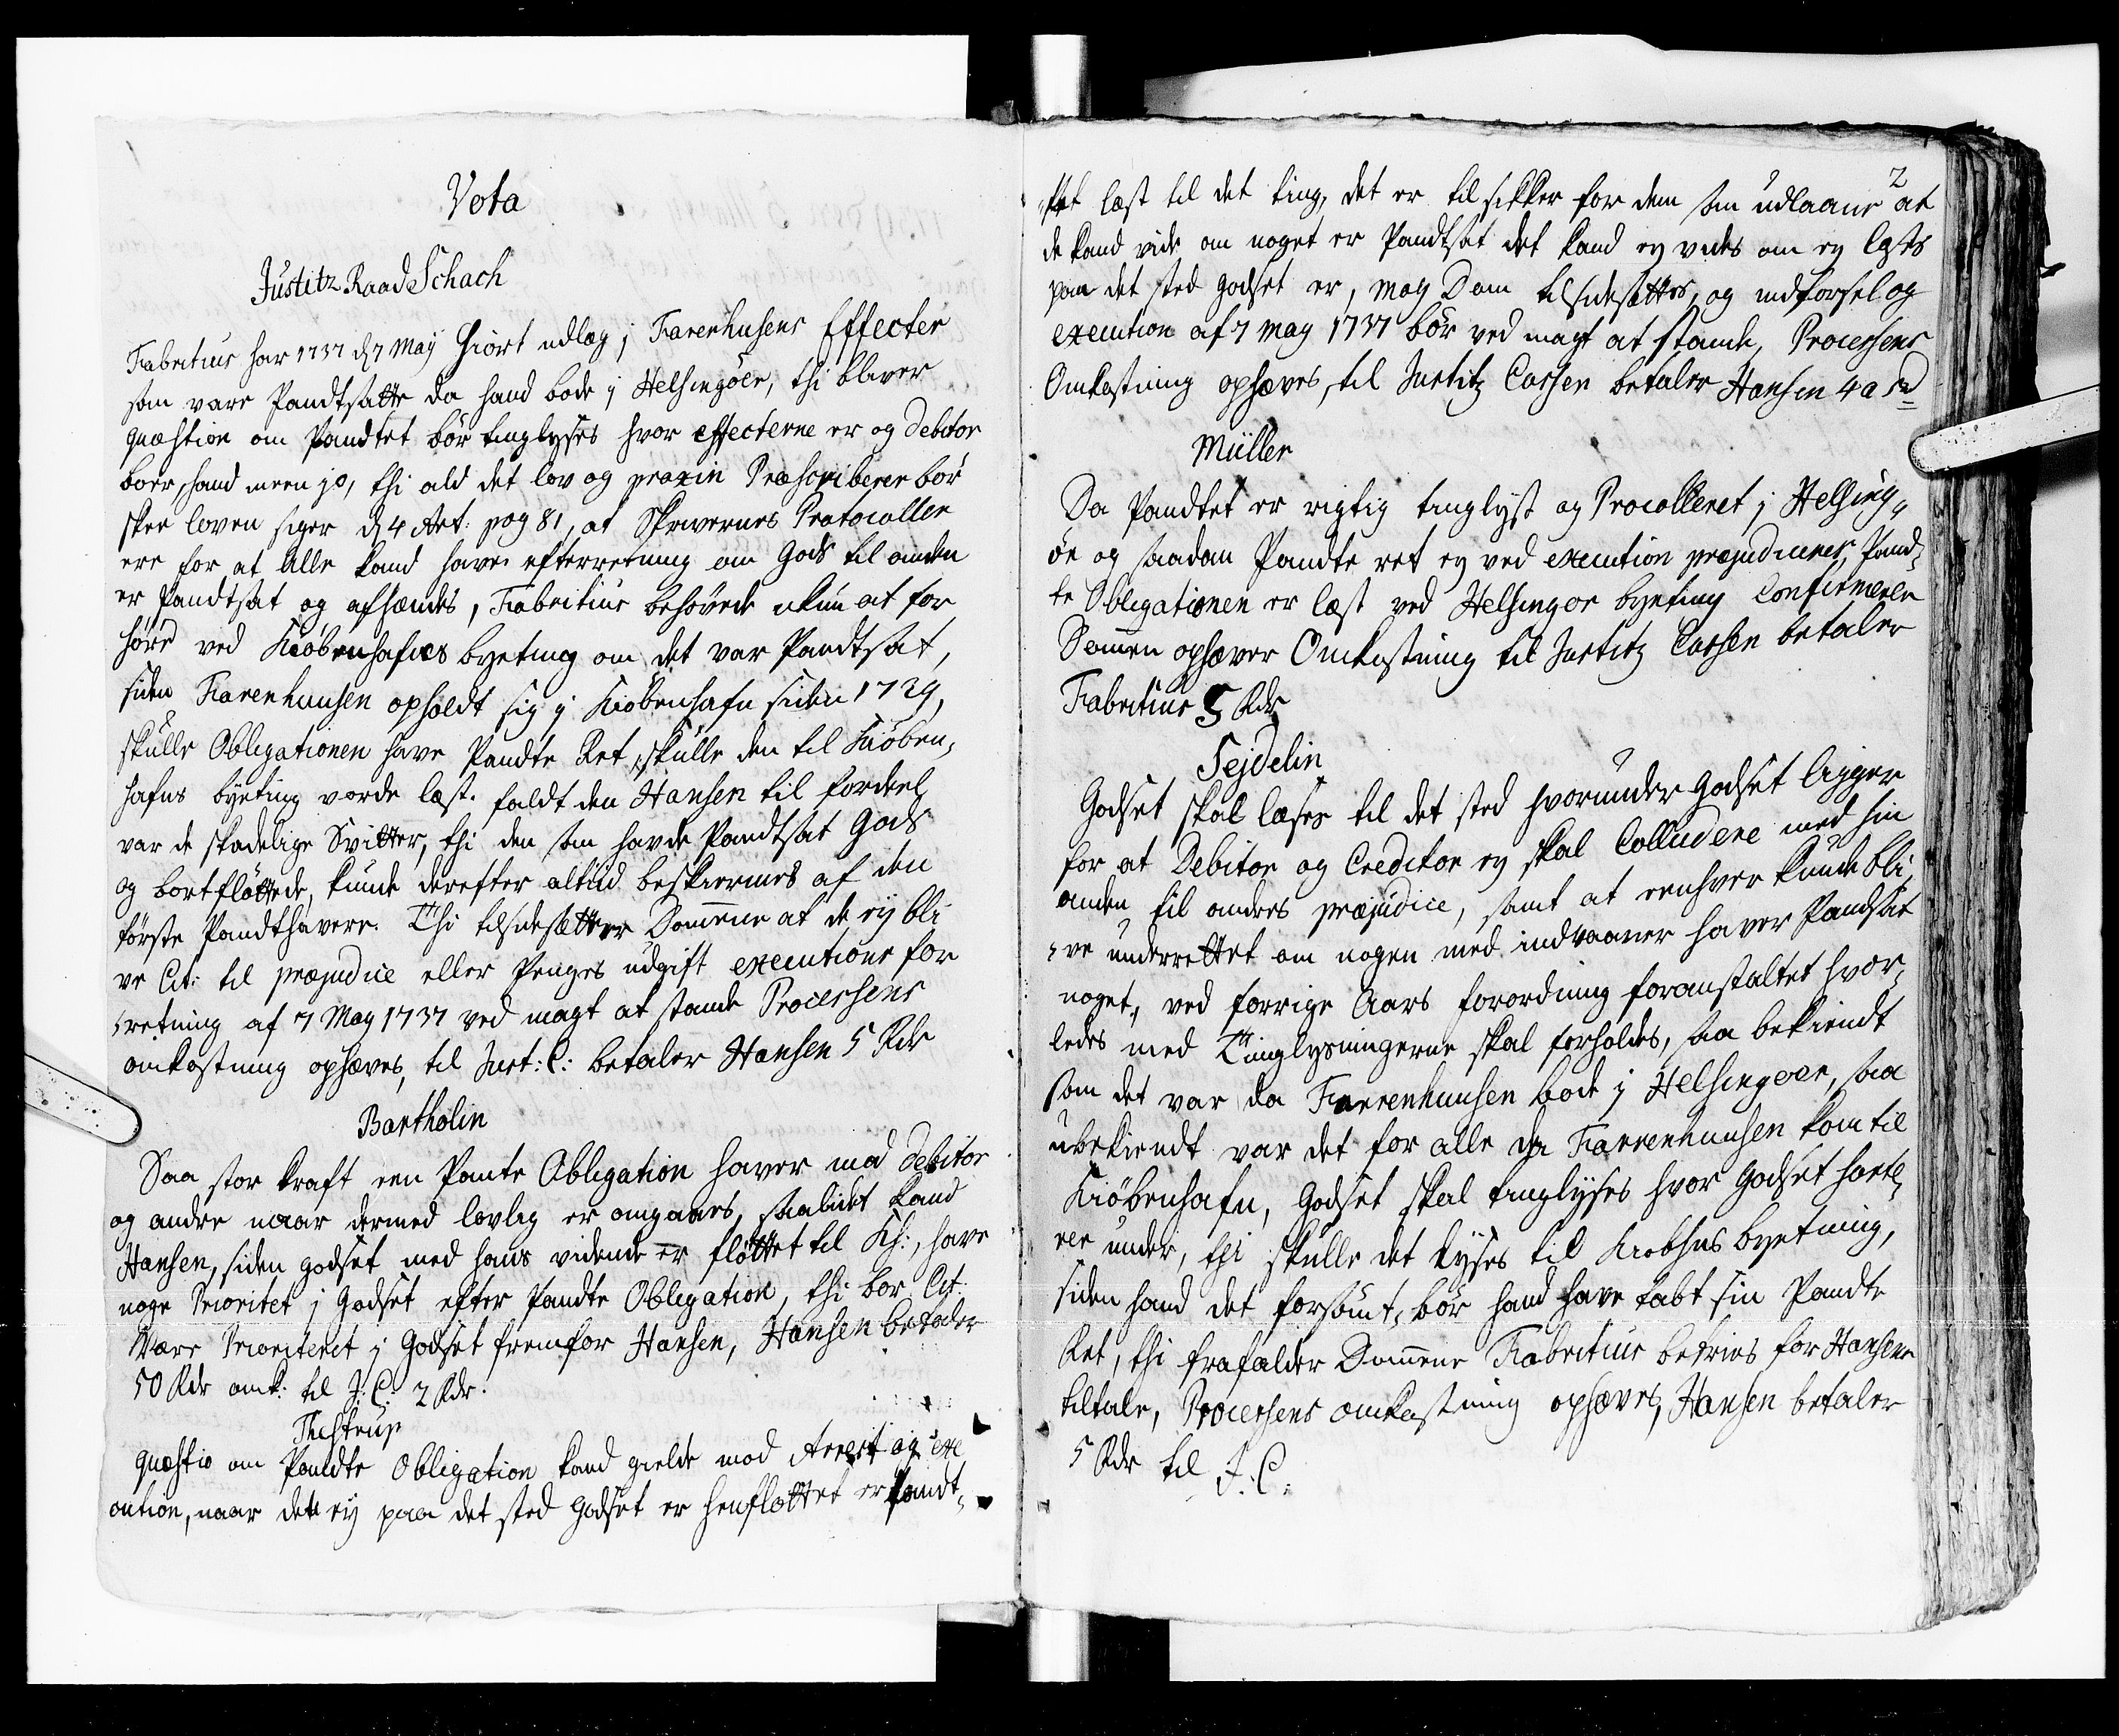 Vota
Justitz Raad Schach
Fabritius har 1737 d 7 May Giort udlæg i Farenhusens Effecter
som vare Pandtsatte da hand bode i Helsingöer, thi bliver
quæstion om Pandtet bör tinglyses hvor effecterne er og Debitor
boer, hand meen jo, thi ald det lov og praxin Præscriberer bör
skee loven siger d 4 Art: pag 81, at Skrivernes Protocoller
ere for at Alle kand have efterretning om Gods til anden
er Pandtsat og afhændes, Fabritius behövede ikun at for
hörd ved Kiöbenhafns byeting om det var Pandtsat,
siden Farenhuusen opholdt sig i Kiöbenhafn siden 1729,
skulle Obligationen have Pandte Ret, skulle den til Kiöben,
hafns byeting vorde læst. faldt den Hansen til fordeel,
var de skadelige Svitter, thi den som havde Pandtsat Gods
og bortflöttede, kunde derefter altiid beskiermes af den
förste Pandthavere. Thi tilsidesætter Domene at de ey bli
ve Cit: til præjudice eller Penges udgift executions for
,retning af 7 May 1737 ved magt at stande Processens
omkostning ophæves, til Just: C: betaler Hansen 5 Rdr
Bartholin
Saa stor kraft een Pante Obligation haver mod Debitor
og andre naar dermed lovlig er omgaaes, saalidet kand
Hansen, siden godset med hans vidende er flöttet til Kh:, have
noge Prioritet i Godset efter Pandte Obligation, thi bor Cit:
Være Prioriteret i Godset fremfor Hansen, Hansen betaler
50 Rdr omk: til J: C: 2 Rdr.
Thestrup
Quæstio om Pandte Obligation kand gielde mod Arrest og exe
cution, naar det ey paa det sted Godset er henflöttet er Pandt,
2
,tet læst til det ting, det er til sikker for dem som udlaane at
de kand vide om noget er Pandtsat det kand ey vides om ey læses
paa det sted Godset er, may Dom tilsidesættes, og indforsel og
execution af 7 may 1737 bör ved magt at stande, Processens
Omkostning ophæves, til Justitz Cassen betaler Hansen 4 a 5 rd
Müller
Da Pandtet er rigtig tinglyst og Procolleret i Helsing,
ör og saadan Pandte ret ey ved execution præjudiceres, Pand,
te Obligationen er læst ved Helsingör byeting Confirmerer
Domen ophæver Omkostning til Justitz Cassen betaler
Fabritius 5 Rdr
Sejdelin
Godset skal læses til det sted hvorunder Godset ligger
for at Debitor og Creditor ey skal Colludere med hin
anden til andres præjudice, samt at eenhver kunde bli,
,ve underrettet om nogen med indvaaner haver Pandsat
noget, ved forrige Aars forordning foranstaltet hvor,
ledes med Tinglysningerne skal forholdes, saa bekiendt
som det var da Farrenhuusen bode i Helsingöer, saa
ubekiendt var det for alle da Farrenhuusen kom til
Kiöbenhafn, Godset skal tinglyses hvor Godset sorte,
rer under, thi skulle det lyses til Kiobhns byetning,
siden hand det forsömt, bör hand have tabt sin Pandte
Ret, thi frafalder Domene Fabritius befries for Hansens
tiltale, Processens omkostning ophæves, Hansen betaler
5 Rdr til J. C: